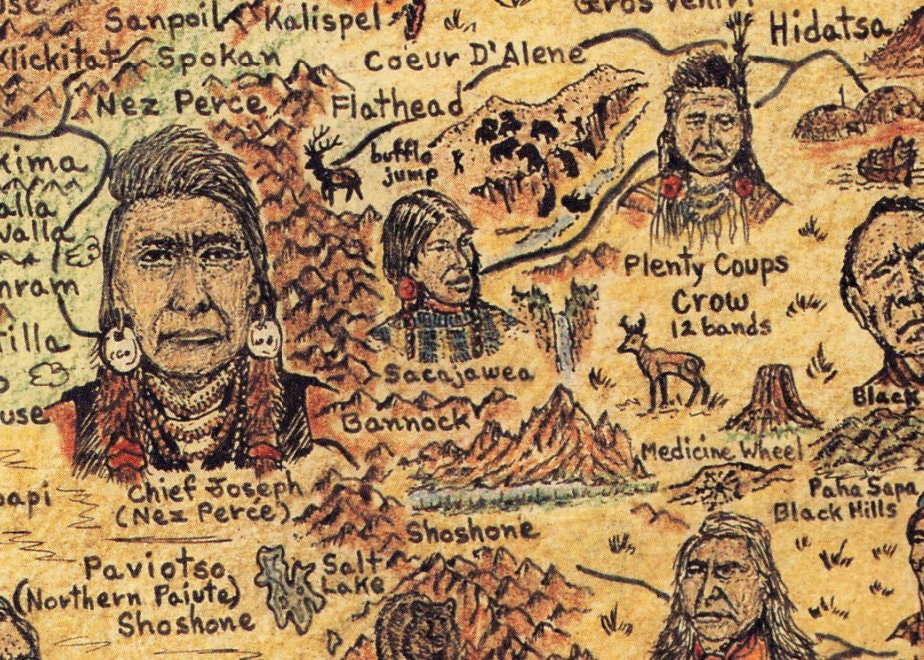 Sanpoil
Kalispel
Gros Ventr
Klickitat
Spokan
Coeur D'Alene
Hidatsa
Nez Perce
Flathead
kima
bufflo
jump
alla
walla
Plenty Coups
Crow
12 bands
Sacajawea
Black
Bannock
Medicine Wheel
Chief Joseph
(Nez Perce)
Paha Sapa
Black Hills
Shoshone
Paviotso
(Northern Paiute)
Shoshone
Salt
Lake